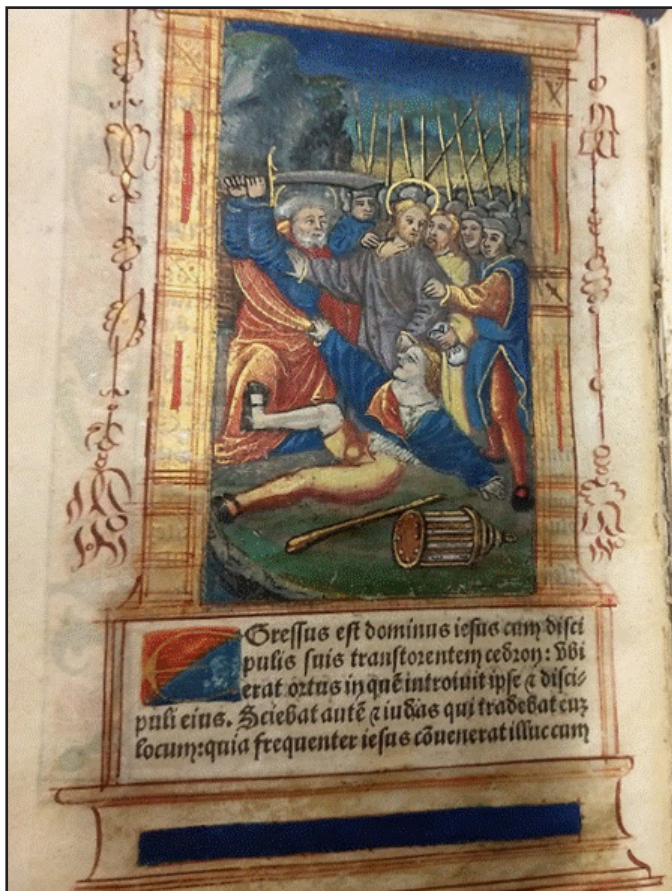 EGressus est dominus iesus cum disci
pulis suis trans torentem cedron: Vbi
erat ortus in quē introiuit ipse ⁊ disci-
puli eius. Sciebat autē ⁊ iudas qui tradebat euꝫ
locum: quia frequenter iesus cōuenerat illuc cum